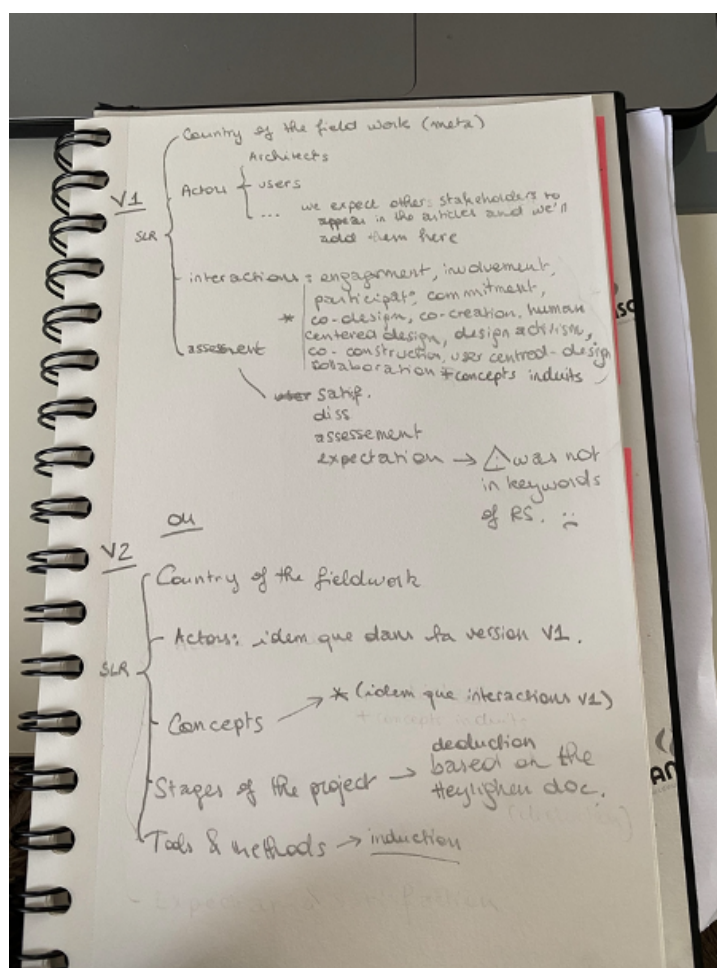 Country of the field work (meta)
Architects
V1
Actors
users
...
we expect others stakeholders to
appear in the articles and we'll
add them here
SLR
interactions : engagement, involvement,
participat°, commitment,
* co-design, co-creation, human
centered design, design activism,
co-construction, user centred-design
collaboration + concepts induits
assessment
satisf.
diss
assessement
expectation → ⚠ was not
in keywords
of RS. :(
ou
V2
Country of the fieldwork
Actors: idem que dans la version V1.
SLR
Concepts → * (idem que interactions V1)
+ concepts induits
deduction
Stages of the project → based on the
Heylighen doc.
Tools & methods → induction